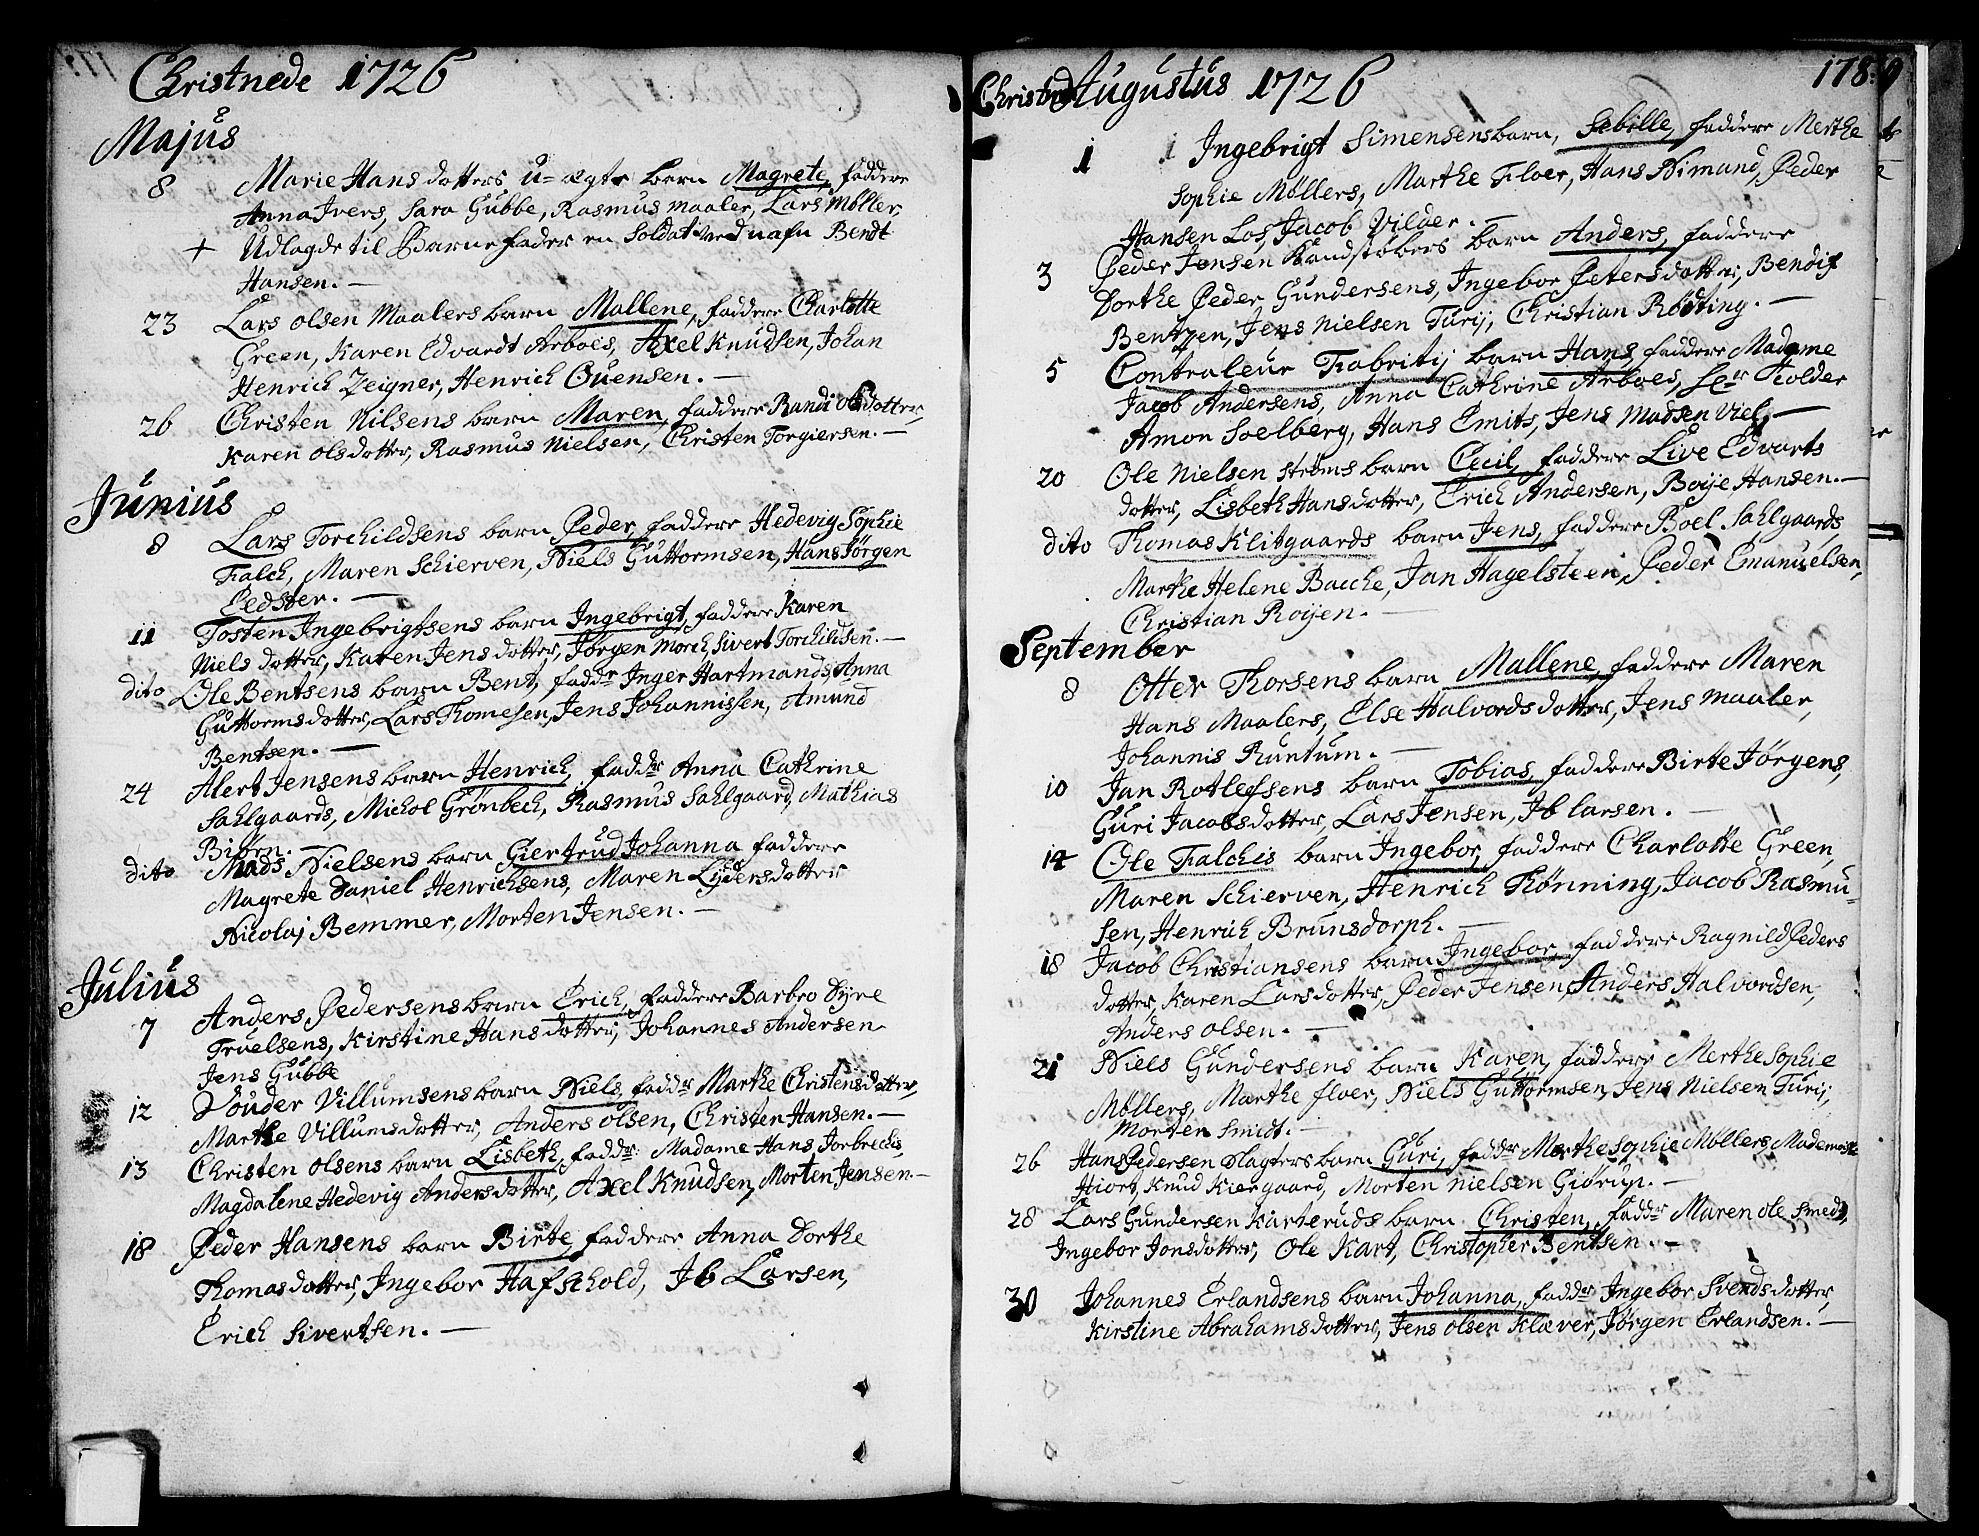 Christnede 1726
Majus
8 Marie Hans dotters u-ægte barn Magrete, faddere
Anna Ivers, Sara Gubbe, Rasmus maaler, Lars Möller,
+ Udlagde til Barnefader en Soldat ved nafn Bendt
Hansen. —
23 Lars olsen Maalers barn Mallene, faddere Charlotte
Green, Karen Edvardt Arboes, Axel Knudsen, Johan
Henrich Zeigner, Henrich Ouensen. —
26 Christen Nilsens barn Maren, faddere Randi olsdotter,
Karen olsdotter, Rasmus Nielsen, Christen Torgiersen. —
Junius
8 Lars Torchildsens barn Peder, faddere Hedevig Sophie
Falch, Maren Schierven, Niels Guttormsen, Hans Jörgen
Pedster. —
11 Tosten Ingebrigtsens barn Ingebrigt, faddere Karen
Niels dotter, Karen Jens dotter, Jörgen Morch, Sivert Torchildsen. —
dito Ole Bentsens barn Bent, faddr Inger Hartmands, Anna
Guttormsdotter, Lars Thomesen, Jens Johannissen, Amund
Bentsen. —
24 Alert Jensens barn Henrich, faddr Anna Cathrine
Sahlgaards, Michol Grönbech, Rasmus Sahlgaard, Mathias
Biörn. —
dito Mads Nielsens barn Giertrud Johanna faddere
Magrete Daniel Henrichsens, Maren Lydersdotter
Nicolaj Bemmer, Morten Jensen. —
Julius
7 Anders Pedersens barn Erich, faddere Barbro Dyre
Truelsens, Kirstine Hansdotter, Johannes Andersen
Jens Gubbe
12 Vouder Villumsens barn Niels, faddr Marthe Christensdotter,
Marthe Villumsdotter, Anders olsen, Christen Hansen. —
13 Christen olsens barn Lisbeth, faddr: Madame Hans Jorbrechis,
Magdalene Hedevig Andersdotter, Axel Knudsen, Morten Jensen. —
18 Peder Hansens barn Birte, faddere Anna Dorthe
Thomasdotter, Ingebor Hafskhold, Ib Larsen,
Erich Sivertsen. —
Christnede Augustus 1726 178.
1 Ingebrigt Simensens barn, Sebille, faddere Merthe
Sophie Möllers, Marthe Floer, Hans Nimand, Peder
Hansen Los, Jacob Vilder. —
3 Peder Jensen Kandstöbers barn Anders, faddere
Dorthe Peder Gundersens, Ingebor Petersdotter, Bendix
Bentzen, Jens Nielsen Turij, Christian Rödting. —
5 Contraleur Fabritij barn Hans, faddere Madame
Jacob Andersens, Anna Cathrine Arboes, Ser Tiolder
Amon Soelberg, Hans Emits, Jens Madsen Viel, —
20 Ole Nielsen Ströms barn Cecil, faddere Live Edvarts
dotter, Lisbeth Hansdotter, Erich Andersen, Boije Hansen. —
dito Thomas Klitgaards barn Jens, faddere Boel Sahlgaards,
Marthe Helene Bacche, Jan Hagelsteen, Peder Emanuelsen,
Christian Roijen. —
September
8 Otter Thorsens barn Mallene, faddere Maren
Hans Maalers, Else Halvordsdotter, Jens maaler,
Johannis Runtum. —
10 Jan Rotlefsens barn Tobias, faddere Birte Jörgens,
Guri Jacobsdotter, Lars Jensen, Ib larsen. —
14 Ole Falchis barn Ingebor, faddere Charlotte Green,
Maren Schierven, Henrich Thönning, Jacob Rasmu-
sen, Henrich Brunsdorph. —
18 Jacob Christiansens barn Ingebor, faddere Ragnild Peders
dotter, Karen Larsdotter, Peder Jensen, Anders Halvordsen,
Anders olsen. —
21 Niels Gundersens barn Karen, faddere Merthe Sophie
Möllers, Marthe floer, Niels Guttormsen, Jens Nielsen Turij,
Morten Smidt. —
26 Hans Pedersen Slagters barn Guri, faddr Merthe Sophie Möllers, Mademoisle
Hiort, Knud Kiergaard, Morten Nielsen Giörup. —
28 Lars Gundersen Karteruds barn Christen, faddr Maren ole Smeds,
Ingebor Jonsdotter, Ole Kart, Christopher Bentsen. —
30 Johannes Erlandsens barn Johanna, faddr Ingebor Svends dotter,
Kirstine Abrahamsdotter, Jens olsen Klæver, Jörgen Erlandsen. —